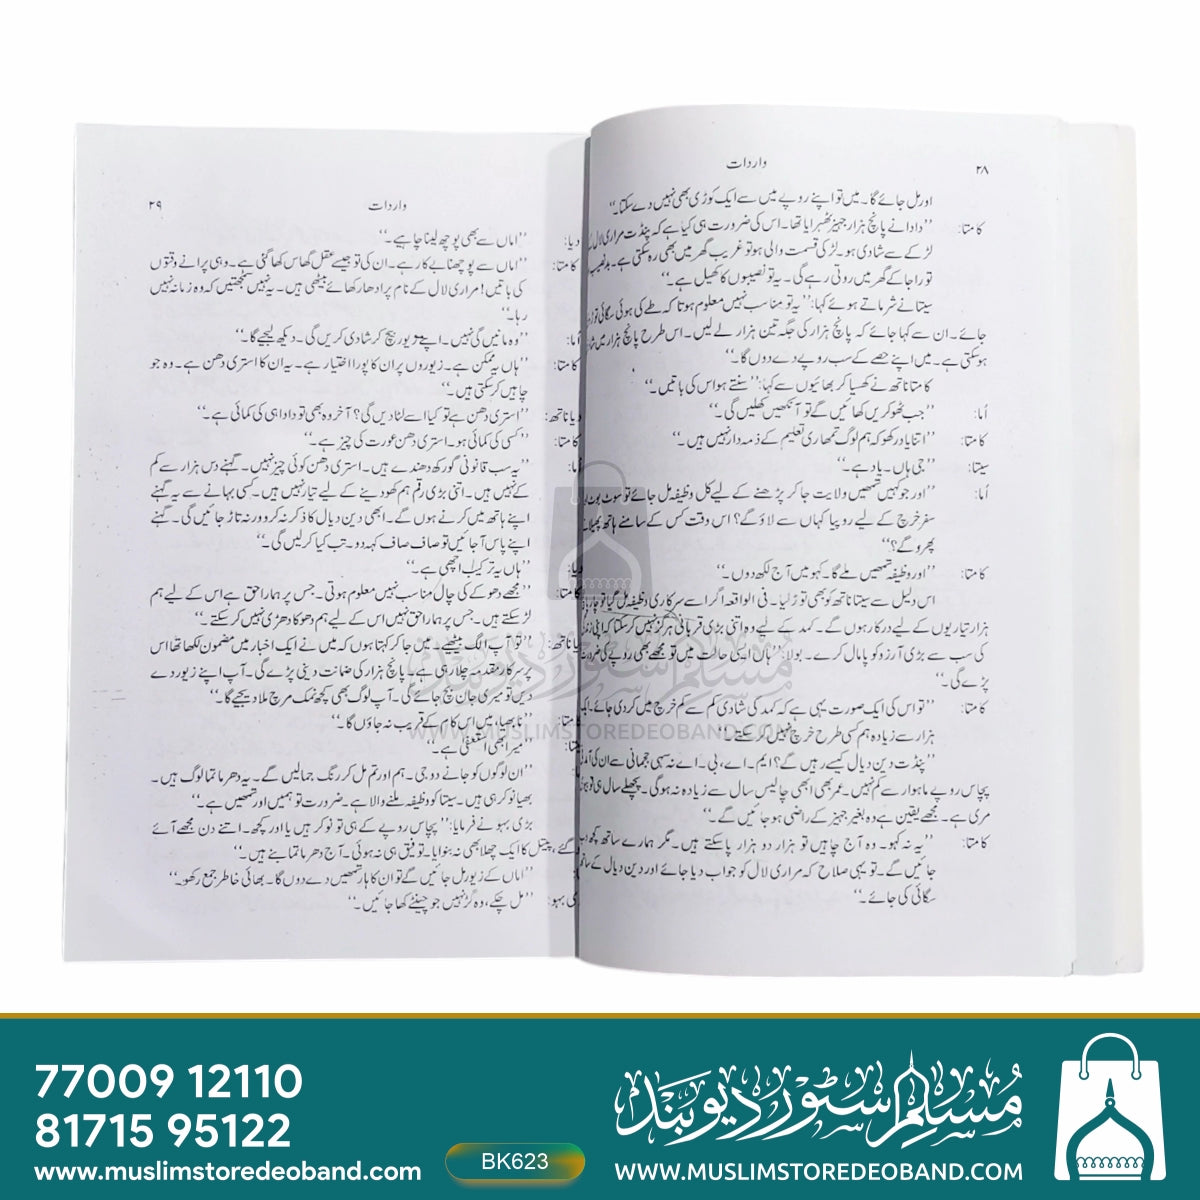 ۲۸
واردات
اور مل جائے گا۔ میں تو اپنے روپے میں سے ایک کوڑی بھی نہیں دے سکتا۔‘‘
کامتا: ’’دادا نے پانچ ہزار جہیز ٹھہرایا تھا۔ اس کی ضرورت ہی کیا ہے کہ پنڈت مراری لال کے
لڑکے سے شادی ہو۔ لڑکی قسمت والی ہو تو غریب گھر میں بھی رہ سکتی ہے۔ بدنصیب
تو راجا کے گھر میں روتی رہے گی۔ یہ تو نصیبوں کا کھیل ہے۔‘‘
سیتا نے شرماتے ہوئے کہا: ’’یہ تو مناسب نہیں معلوم ہوتا کہ طے کی ہوئی سگائی توڑ
جائے۔ ان سے کہا جائے کہ پانچ ہزار کی جگہ تین ہزار لے لیں۔ اس طرح پانچ ہزار میں
ہو سکتی ہے۔ میں اپنے حصے کے سب روپے دے دوں گا۔‘‘
کامتا ناتھ نے کھسیا کر بھائیوں سے کہا: ’’سنتے ہو اس کی باتیں۔‘‘
اُما: ’’جب ٹھوکریں کھائیں گے تو آنکھیں کھلیں گی۔‘‘
کامتا: ’’اتنا یاد رکھو کہ ہم لوگ تمھاری تعلیم کے ذمہ دار نہیں ہیں۔‘‘
سیتا: ’’جی ہاں۔ یاد ہے۔‘‘
اُما: ’’اور جو کہیں تمھیں ولایت جا کر پڑھنے کے لیے کل وظیفہ مل جائے تو سوٹ بوٹ
سفر خرچ کے لیے روپیا کہاں سے لاؤ گے؟ اس وقت کس کے سامنے ہاتھ پھیلاتے
پھرو گے؟‘‘
کامتا: ’’اور وظیفہ تمھیں ملے گا۔ کہو میں آج لکھ دوں۔‘‘
اس دلیل سے سیتا ناتھ کو بھی توڑ لیا۔ فی الواقعہ اگر اسے سرکاری وظیفہ مل گیا تو چار پا
ہزار تیاریوں کے لیے درکار ہوں گے۔ کمد کے لیے وہ اتنی بڑی قربانی ہرگز نہیں کر سکتا کہ اپنی
کی سب سے بڑی آرزو کو پامال کرے۔ بولا: ’’ہاں ایسی حالت میں تو مجھے بھی روپے کی ضرورت
پڑے گی۔‘‘
کامتا: ’’تو اس کی ایک صورت یہی ہے کہ کمد کی شادی کم سے کم خرچ میں کر دی جائے۔ ایک
ہزار سے زیادہ ہم کسی طرح خرچ نہیں کر سکتے۔‘‘
’’پنڈت دین دیال کیسے رہیں گے؟ ایم۔ اے، بی۔ اے نہ سہی ججمانی سے ان کی آمدنی
پچاس روپے ماہوار سے کم نہیں۔ عمر بھی ابھی چالیس سال سے زیادہ نہ ہوگی۔ پچھلے سال ہی تو بیوی
مری ہے۔ مجھے یقین ہے وہ بغیر جہیز کے راضی ہو جائیں گے۔‘‘
کامتا: ’’یہ نہ کہو۔ وہ آج چاہیں تو ہزار دو ہزار پا سکتے ہیں۔ مگر ہمارے ساتھ کچھ دب
جائیں گے۔ تو یہی صلاح کہ مراری لال کو جواب دیا جائے اور دین دیال کے ساتھ
سگائی کی جائے۔‘‘
واردات
۲۹
دیا: ’’اماں سے بھی پوچھ لینا چاہیے۔‘‘
کامتا: ’’اماں سے پوچھنا بے کار ہے۔ ان کی تو جیسے عقل گھاس کھا گئی ہے۔ وہی پرانے وقتوں
کی باتیں! مراری لال کے نام پر ادھار کھائے بیٹھی ہیں۔ یہ نہیں سمجھتیں کہ وہ زمانہ نہیں
رہا۔‘‘
اُما: ’’وہ مانیں گی نہیں۔ اپنے زیور بیچ کر شادی کریں گی۔ دیکھ لیجیے گا۔‘‘
کامتا: ’’ہاں یہ ممکن ہے۔ زیوروں پر ان کا پورا اختیار ہے۔ یہ ان کا استری دھن ہے۔ وہ جو
چاہیں کر سکتی ہیں۔‘‘
دیا ناتھ: ’’استری دھن ہے تو کیا اسے لٹا دیں گی؟ آخر وہ بھی تو دادا ہی کی کمائی ہے۔‘‘
کامتا: ’’کسی کی کمائی ہو۔ استری دھن عورت کی چیز ہے۔‘‘
اُما: ’’یہ سب قانونی گورکھ دھندے ہیں۔ استری دھن کوئی چیز نہیں۔ گہنے دس ہزار سے کم
کے نہیں ہیں۔ اتنی بڑی رقم ہم کھو دینے کے لیے تیار نہیں ہیں۔ کسی بہانے سے یہ گہنے
اپنے ہاتھ میں کرنے ہوں گے۔ ابھی دین دیال کا ذکر نہ کرو ورنہ تاڑ جائیں گی۔ گہنے
اپنے پاس آ جائیں تو صاف صاف کہہ دو۔ تب کیا کر لیں گی۔‘‘
دیا: ’’ہاں یہ ترکیب اچھی ہے۔‘‘
کامتا: ’’مجھے دھوکے کی چال مناسب نہیں معلوم ہوتی۔ جس پر ہمارا حق ہے اس کے لیے ہم
لڑ سکتے ہیں۔ جس پر ہمارا حق نہیں اس کے لیے ہم دھوکا دھڑی نہیں کر سکتے۔‘‘
دیا ناتھ: ’’تو آپ الگ بیٹھیے۔ میں جا کر کہتا ہوں کہ میں نے ایک اخبار میں مضمون لکھا تھا اس
پر سرکار مقدمہ چلا رہی ہے۔ پانچ ہزار کی ضمانت دینی پڑے گی۔ آپ اپنے زیور دے
دیں تو میری جان بچ جائے گی۔ آپ لوگ بھی کچھ نمک مرچ ملا دیجیے گا۔‘‘
کامتا: ’’نا بھیا، میں اس کام کے قریب نہ جاؤں گا۔‘‘
سیتا: ’’میرا بھی استعفیٰ ہے۔‘‘
’’ان لوگوں کو جانے دو جی۔ ہم اور تم مل کر رنگ جما لیں گے۔ یہ دھرماتما لوگ ہیں۔
بھیا نوکر ہی ہیں۔ سیتا کو وظیفہ ملنے والا ہے۔ ضرورت تو ہمیں اور تمھیں ہے۔‘‘
بڑی بہو نے فرمایا: ’’پچاس روپے کے ہی تو نوکر ہیں یا اور کچھ۔ اتنے دن مجھے آئے
ہو گئے، پیتل کا ایک چھلا بھی نہ بنوایا۔ توفیق ہی نہ ہوئی۔ آج دھرماتما بنے ہیں۔‘‘
’’اماں کے زیور مل جائیں گے تو ان کا ہار تمھیں دے دوں گا۔ بھائی خاطر جمع رکھو۔‘‘
بڑی بہو: ’’مل چکے، وہ گڑ نہیں جو چیونٹے کھا جائیں۔‘‘
مسلم سٹور دیوبند
WWW.MUSLIMSTOREDEOBAND.COM
77009 12110
81715 95122
www.muslimstoredeoband.com
BK623
مسلم سٹور دیوبند
WWW.MUSLIMSTOREDEOBAND.COM